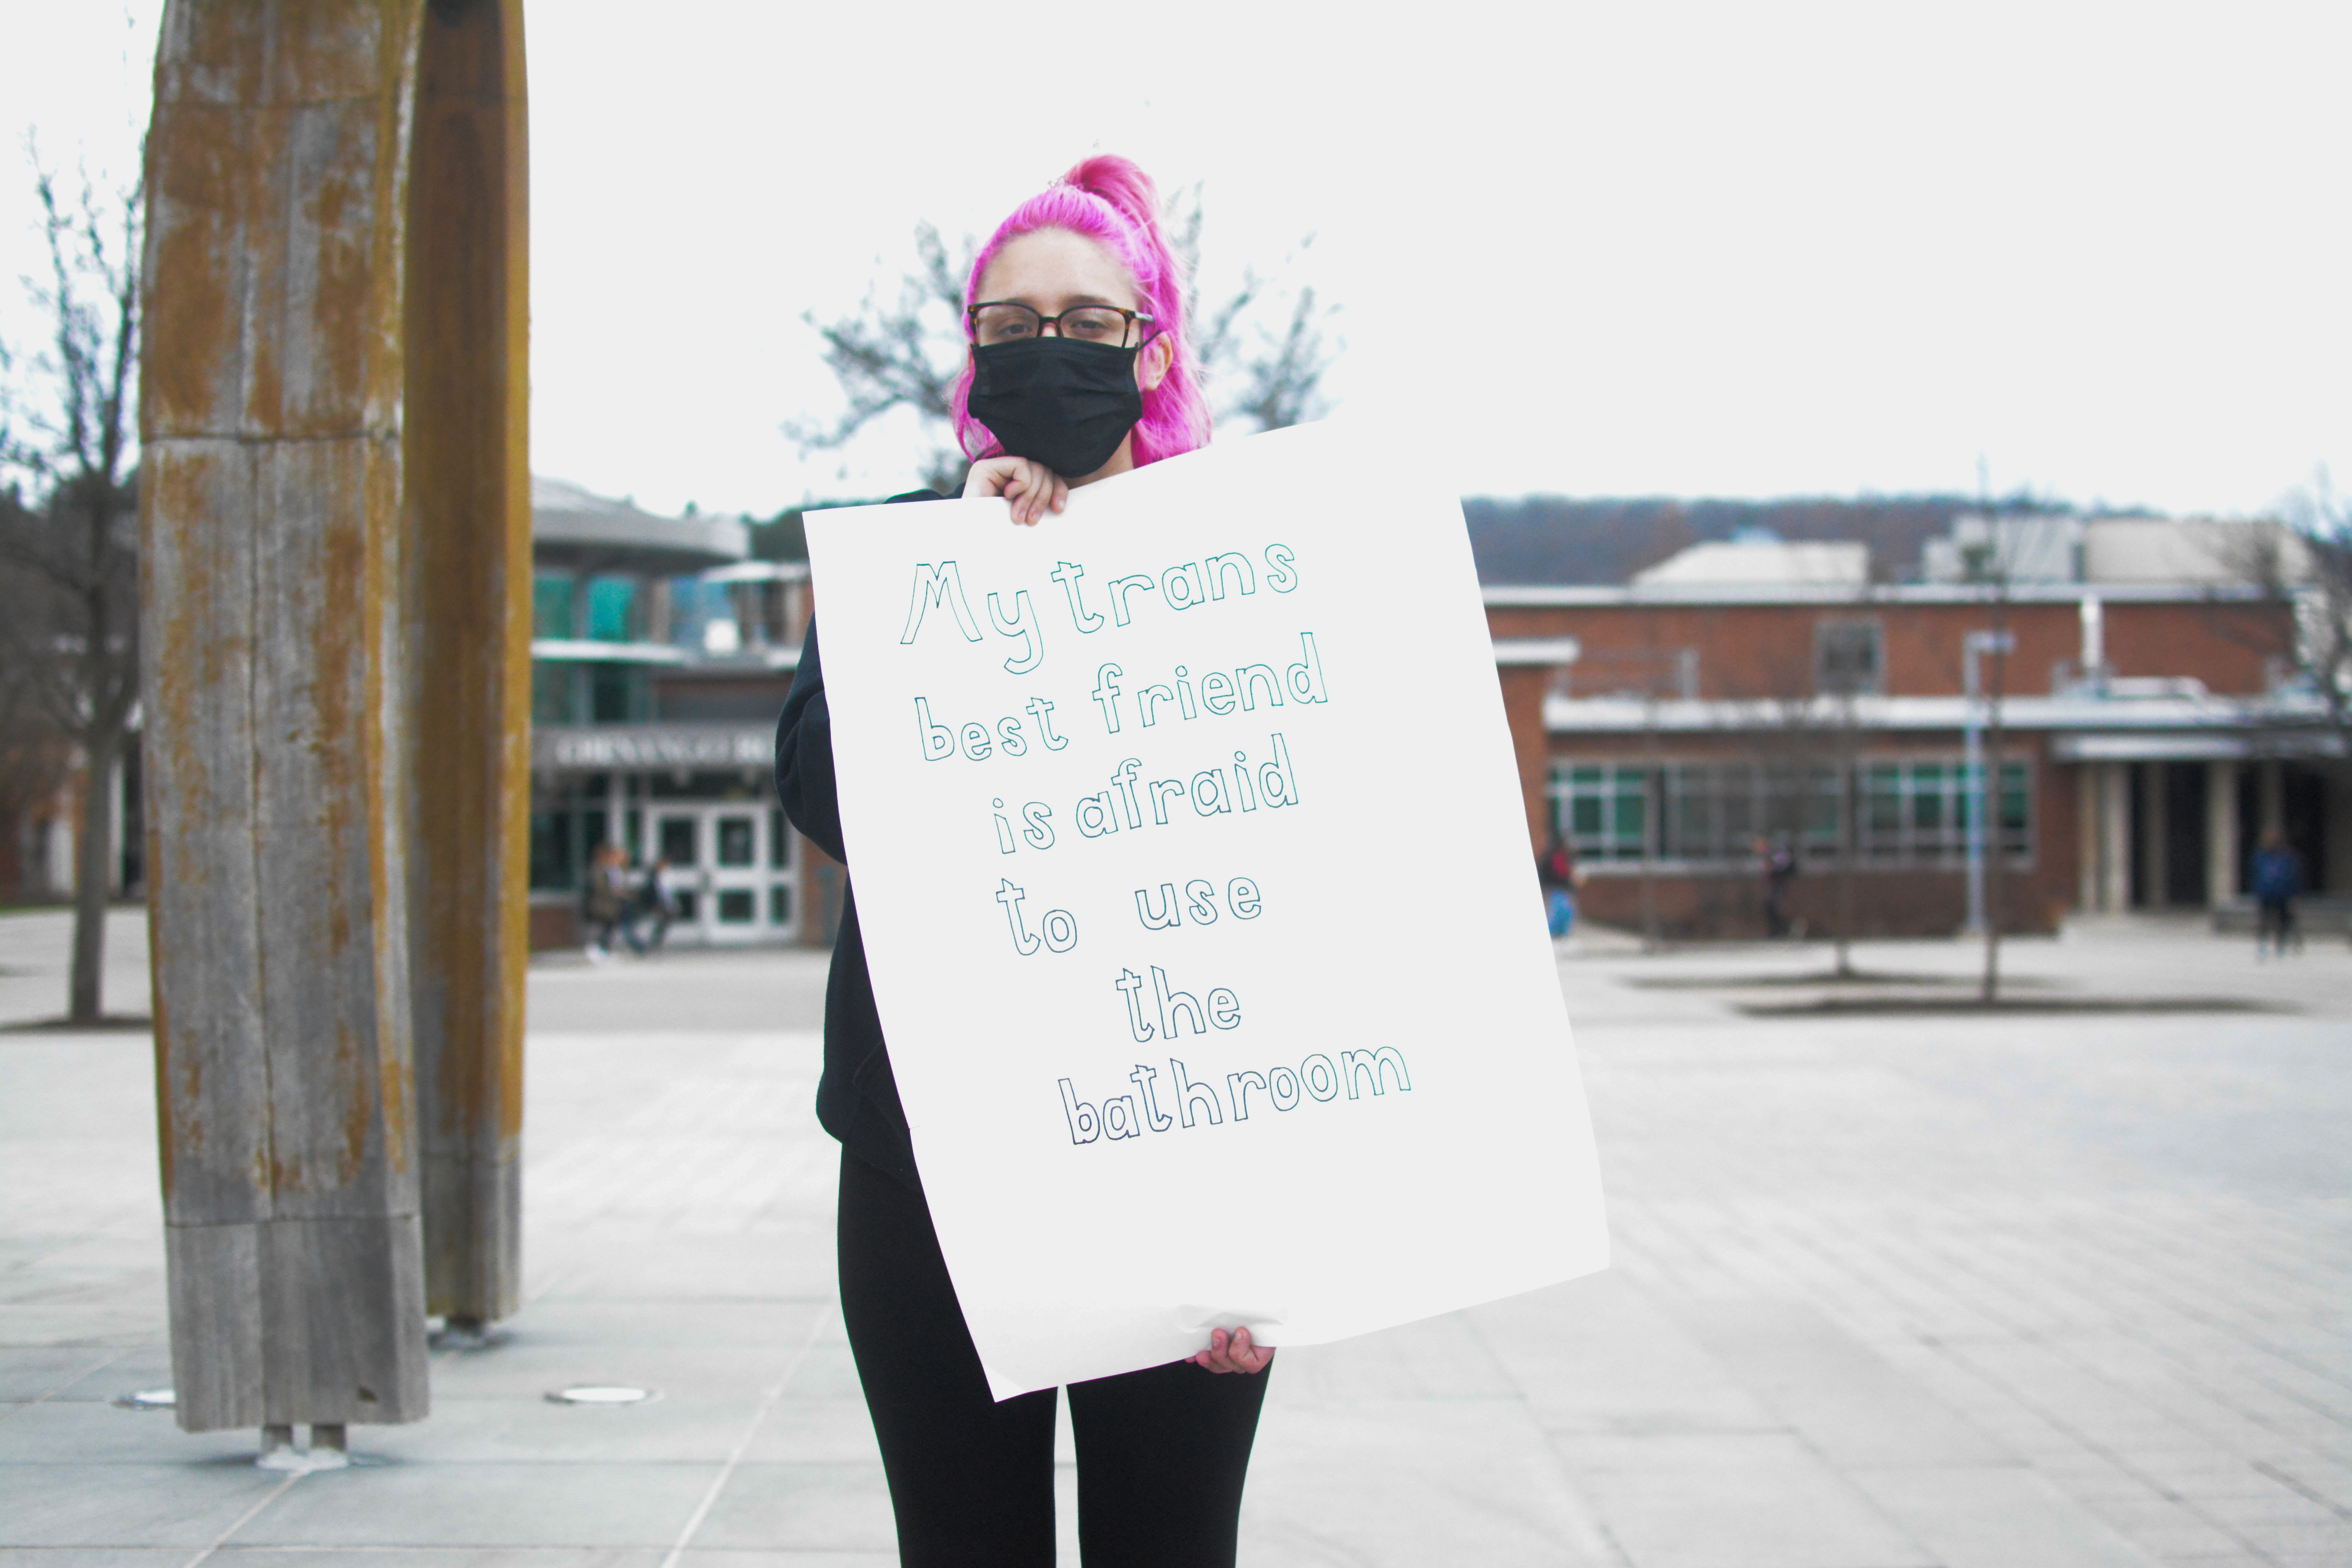 My trans
best friend
is afraid
to use
the
bathroom